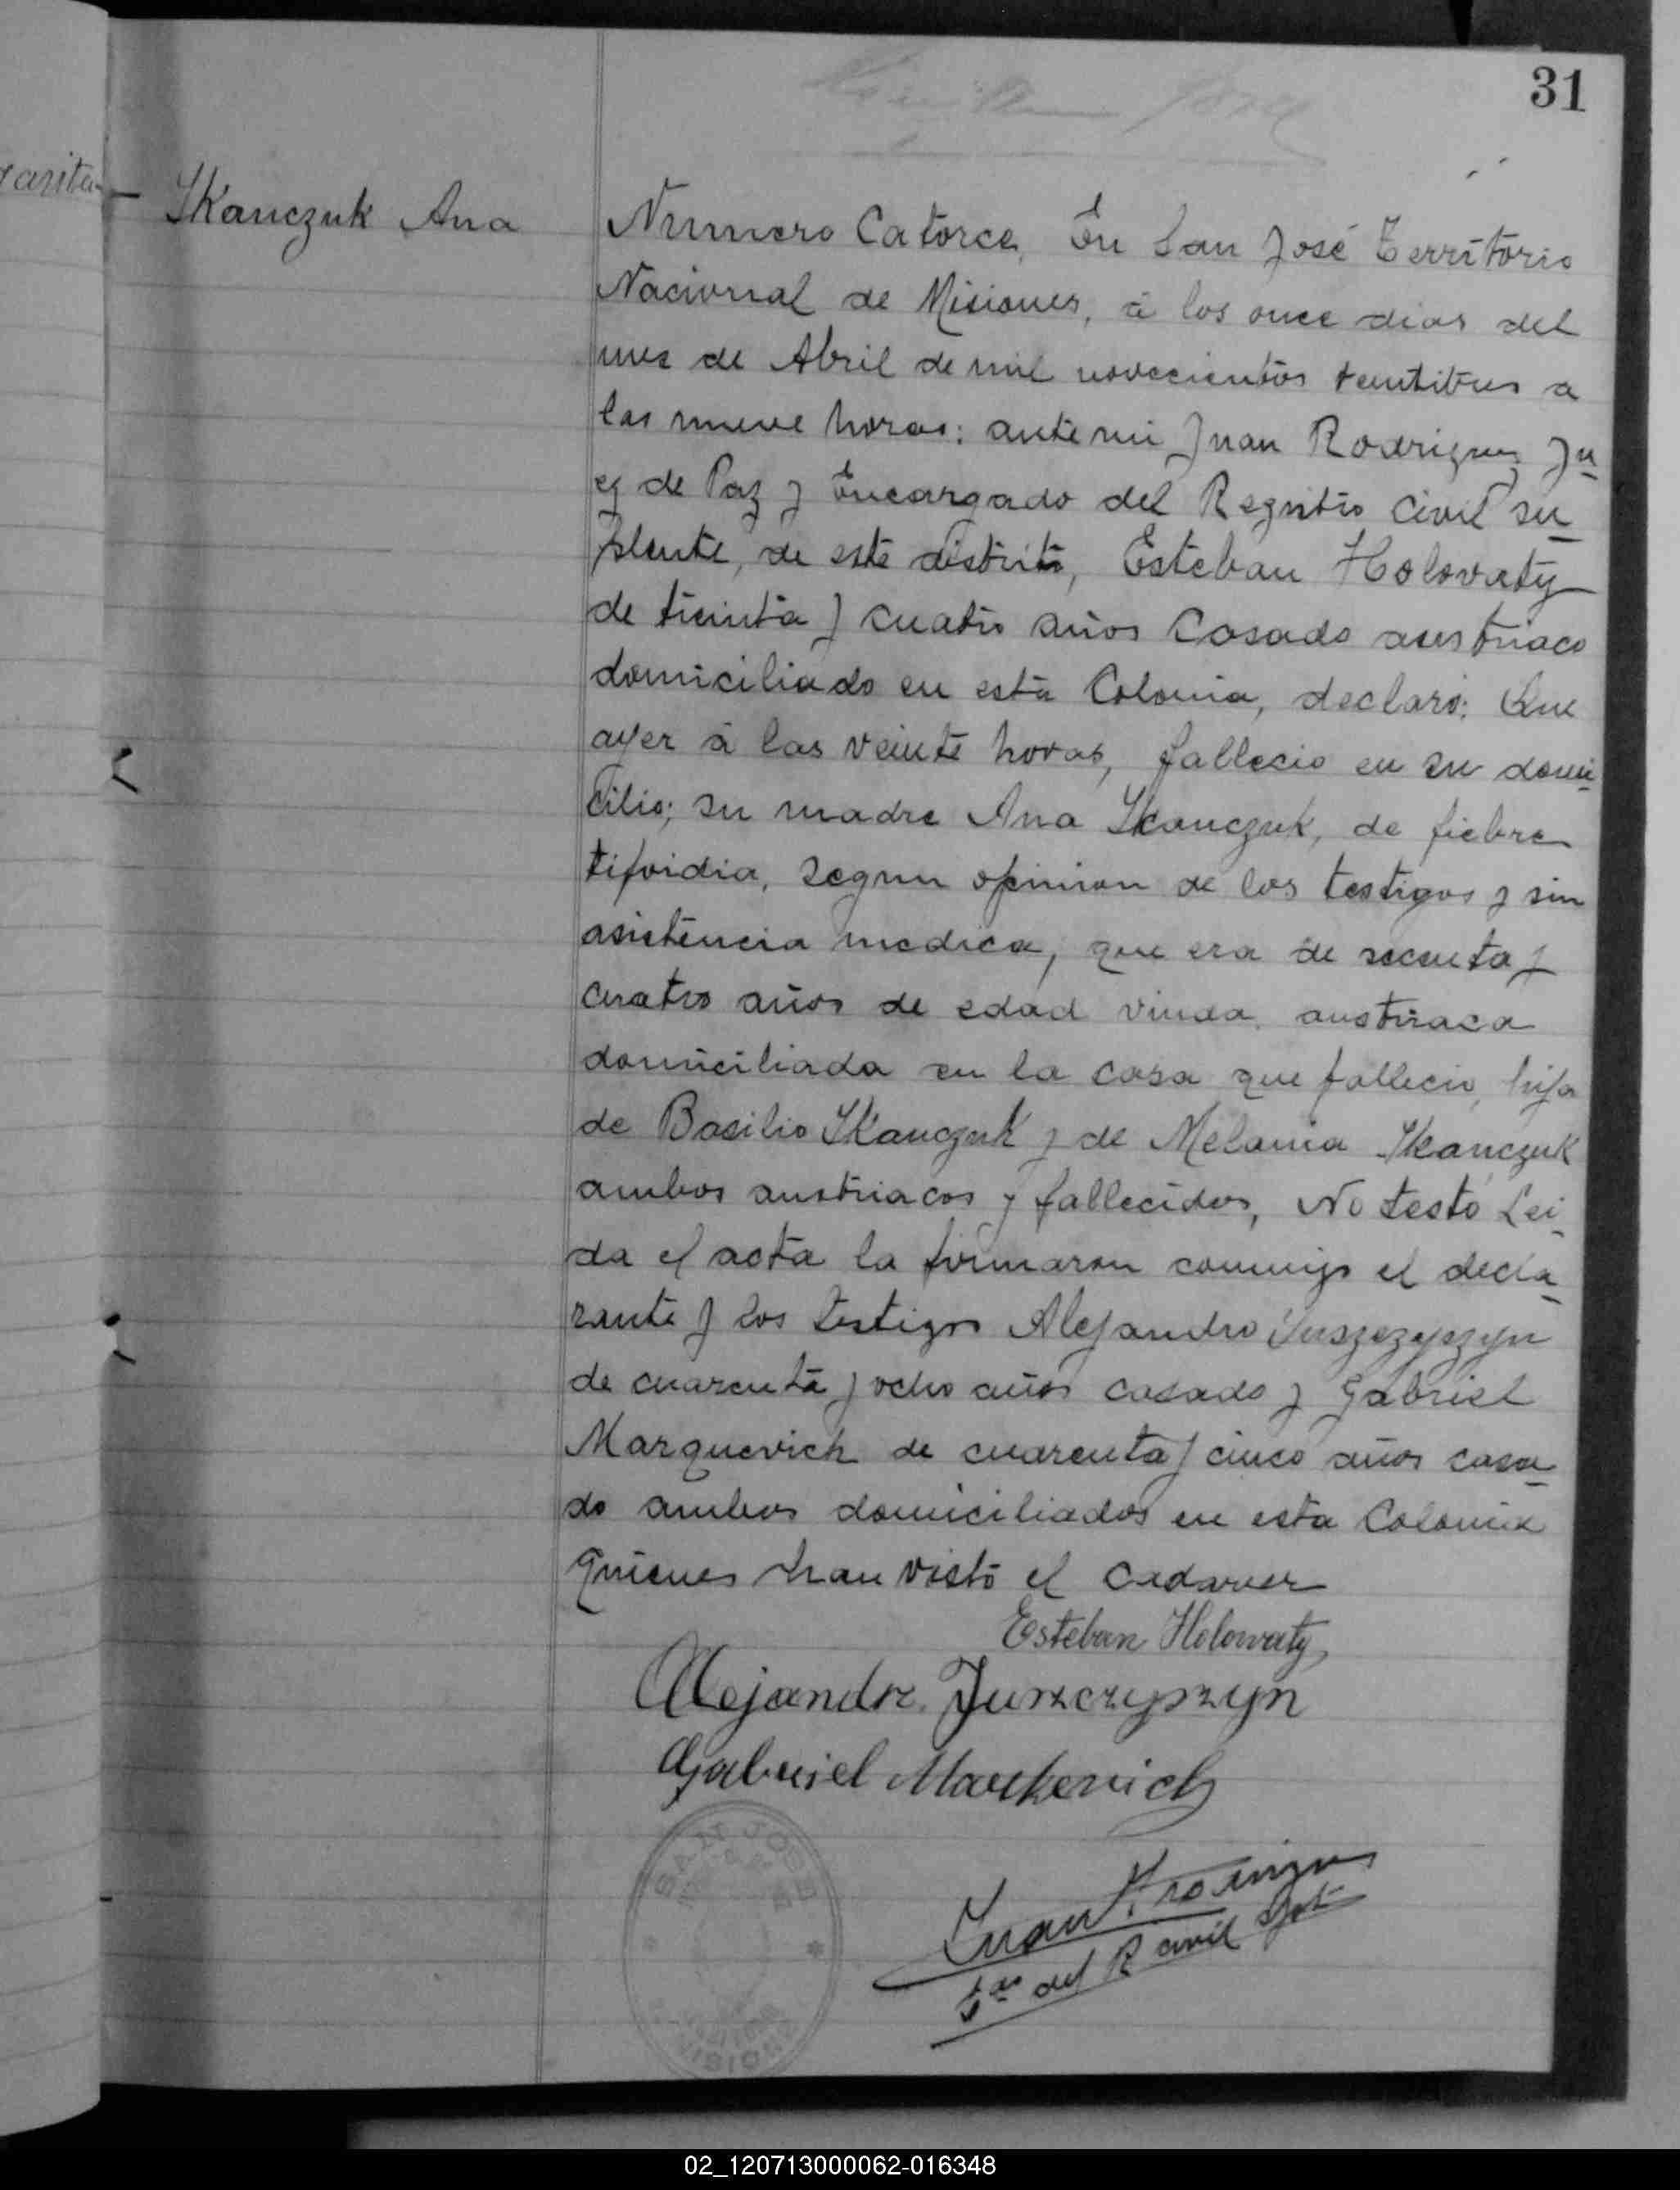 31
Skanczuk Ana
Numero Catorce, En San José Territorio
Nacional de Misiones, á los once dias del
mes de Abril de mil novecientos
a
las nueve horas: ante mi Juan Rodriguez Ju
ez de Paz y Encargado del Registro Civil su
plente, de este distrito, Esteban Holovaty
de treinta y cuatro años Casado austriaco
domiciliado en esta Colonia, declaró: Que
ayer á las veinte horas, fallecio en su domi
cilio; su madre Ana Skanczuk, de fiebre
tifoidia, segun opinion de los testigos y sin
asistencia medica, que era de secenta y
cuatro años de edad viuda, austriaca
domiciliada en la casa que fallecio, hija
de Basilio Skanczuk y de Melania Skanczuk
ambos austriacos y fallecidos, No testó Lei
da el acta la firmaron conmigo el decla
rante y los testigos Alejandro Juszczyszyn
de cuarenta y ocho años casado y Gabriel
Marquevich de cuarenta y cinco años casa
do ambos domiciliados en esta Colonia
quienes han visto el cadaver
Esteban Holowaty
Alejandro Juszczyszyn
Gabriel Markevich
SAN JOSE
MISIONES
Juan Rodriguez
del R civil
02_120713000062-016348